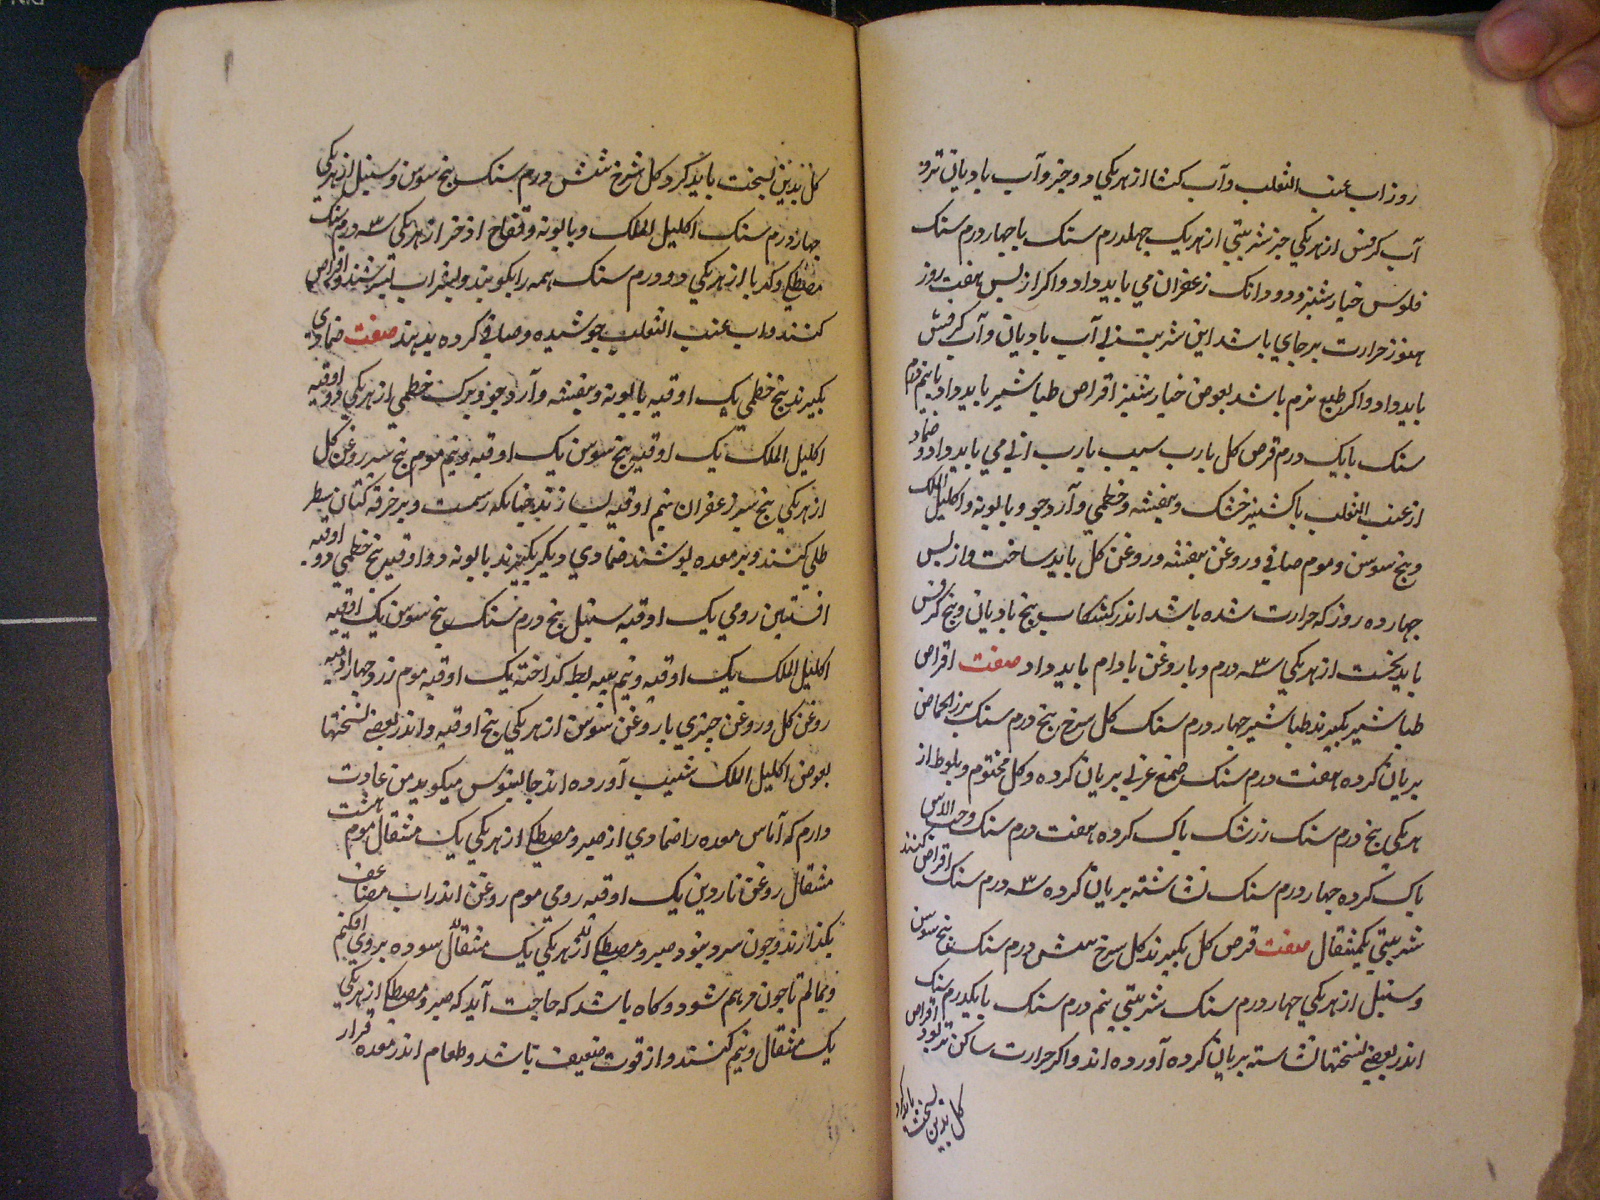 روز اب عنب الثعلب و آب کشا از هر یکی دو جز و آب بادیان تر و
آب کرفس از هر یکی جز شربتی از هر یک چهلدرم سنک با چهار درم سنک
فلوس خیارشنبر و دو دانک زعفران می باید داد و اکر از پس هفت روز
هنوز حرارت بر جای باشد این شربت بی آب بادیان و آب کرفس
باید داد و اکر طبع نرم باشد بعوض خیارشنبر اقراص طباشیر باید داد با نیم درم
سنک یا یک درم قرص کل با رب سیب یا رب ابی می باید داد و ضماد
از عنب الثعلب با کشنیز خشک و بنفشه و خطمی و آرد جو و بابونه و اکلیل الملک
و بیخ سوسن و موم صافی و روغن بنفشه و روغن کل باید ساخت و از پس
چهارده روز که حرارت شده باشد اندر کشکاب بیخ بادیان و بیخ کرفس
باید پخت از هر یکی سه درم و با روغن بادام باید داد صفت اقراص
طباشیر بکیرند طباشیر چهار درم سنک کل سرخ پنج درم سنک بزر الحماض
بریان کرده هفت درم سنک صمغ عربی بریان کرده و کل مختوم و بلوط از
هر یکی پنج درم سنک زرشک پاک کرده هفت درم سنک و حب الاس
پاک کرده چهار درم سنک نشاشته بریان کرده سه درم سنک اقراص کنند
شربتی یکمثقال صفت قرص کل بکیرند کل سرخ شش درم سنک بیخ سوسن
و سنبل از هر یکی چهار درم سنک شربتی نیم درم سنک یا یکدرم سنک
اندر بعضی نسختها نشاسته بریان کرده آورده اند و اکر حرارت ساکن تر بود اقراص
کل بدین نسخت باید کرد
کل بدین نسخت باید کرد کل سرخ شش درم سنک بیخ سوسن و سنبل از هر یکی
چهار درم سنک اکلیل الملک و بابونه و فقاح اذخر از هر یکی سه درم سنک
مصطکی و کهربا از هر یکی دو درم سنک همه را بکوبند و بشراب بسرشند و اقراص
کنند و اب عنب الثعلب جوشیده و صافی کرده بدهند صفت ضمادی
بکیرند بیخ خطمی یک اوقیه بابونه و بنفشه و آرد جو و برک خطمی از هر یکی دو اوقیه
اکلیل الملک یک اوقیه بیخ سوسن یک اوقیه و نیم موم پنج سیر روغن کل
از هر یکی پنج سیر زعفران نیم اوقیه بسازند چنانکه رسمت و بر خرقه کتان سطبر
طلی کنند و بر معده پوشند ضمادی دیکر بکیرند بابونه دو اوقیه بیخ خطمی دو اوقیه
افسنتین رومی یک اوقیه سنبل پنج درم سنک بیخ سوسن یک اوقیه
اکلیل الملک یک اوقیه و نیم پیه بط کداخته یک اوقیه موم زرد چهار اوقیه
روغن کل و روغن چیزی با روغن سوسن از هر یکی پنج اوقیه و اندر بعضی نسختها
بعوض اکلیل الملک شبت آورده اند جالینوس میکوید من عادت
دارم که آماس معده را ضمادی از صبر و مصطکی از هر یکی یک مثقال موم هشت
مثقال روغن ناردین یک اوقیه رومی موم روغن اندر اب مضاعف
بکدازند و چون سرد بود صبر و مصطکی از هر یکی یک مثقال سوده بروی افکنم
و بمالم تا چون مرهم شود و کاه باشد که حاجت آید که صبر و مصطکی از هر یکی
یک مثقال و نیم کنند و از قوت ضعیف باشد و طعام اندر معده قرار